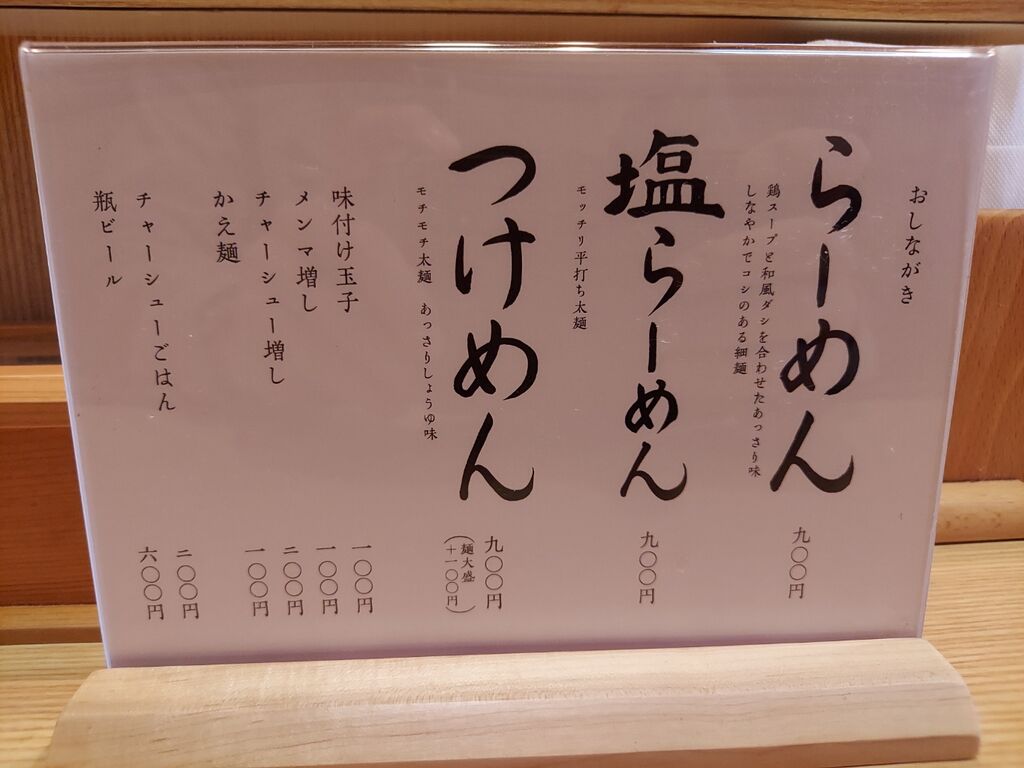 おしながき
らーめん
鶏スープと和風ダシを合わせたあっさり味
しなやかでコシのある細麺
九〇〇円
塩らーめん
モッチリ平打ち太麺
九〇〇円
つけめん
モチモチ太麺 あっさりしょうゆ味
九〇〇円
(麺大盛
+一〇〇円)
味付け玉子 一〇〇円
メンマ増し 一〇〇円
チャーシュー増し 二〇〇円
かえ麺 一〇〇円
チャーシューごはん 二〇〇円
瓶ビール 六〇〇円